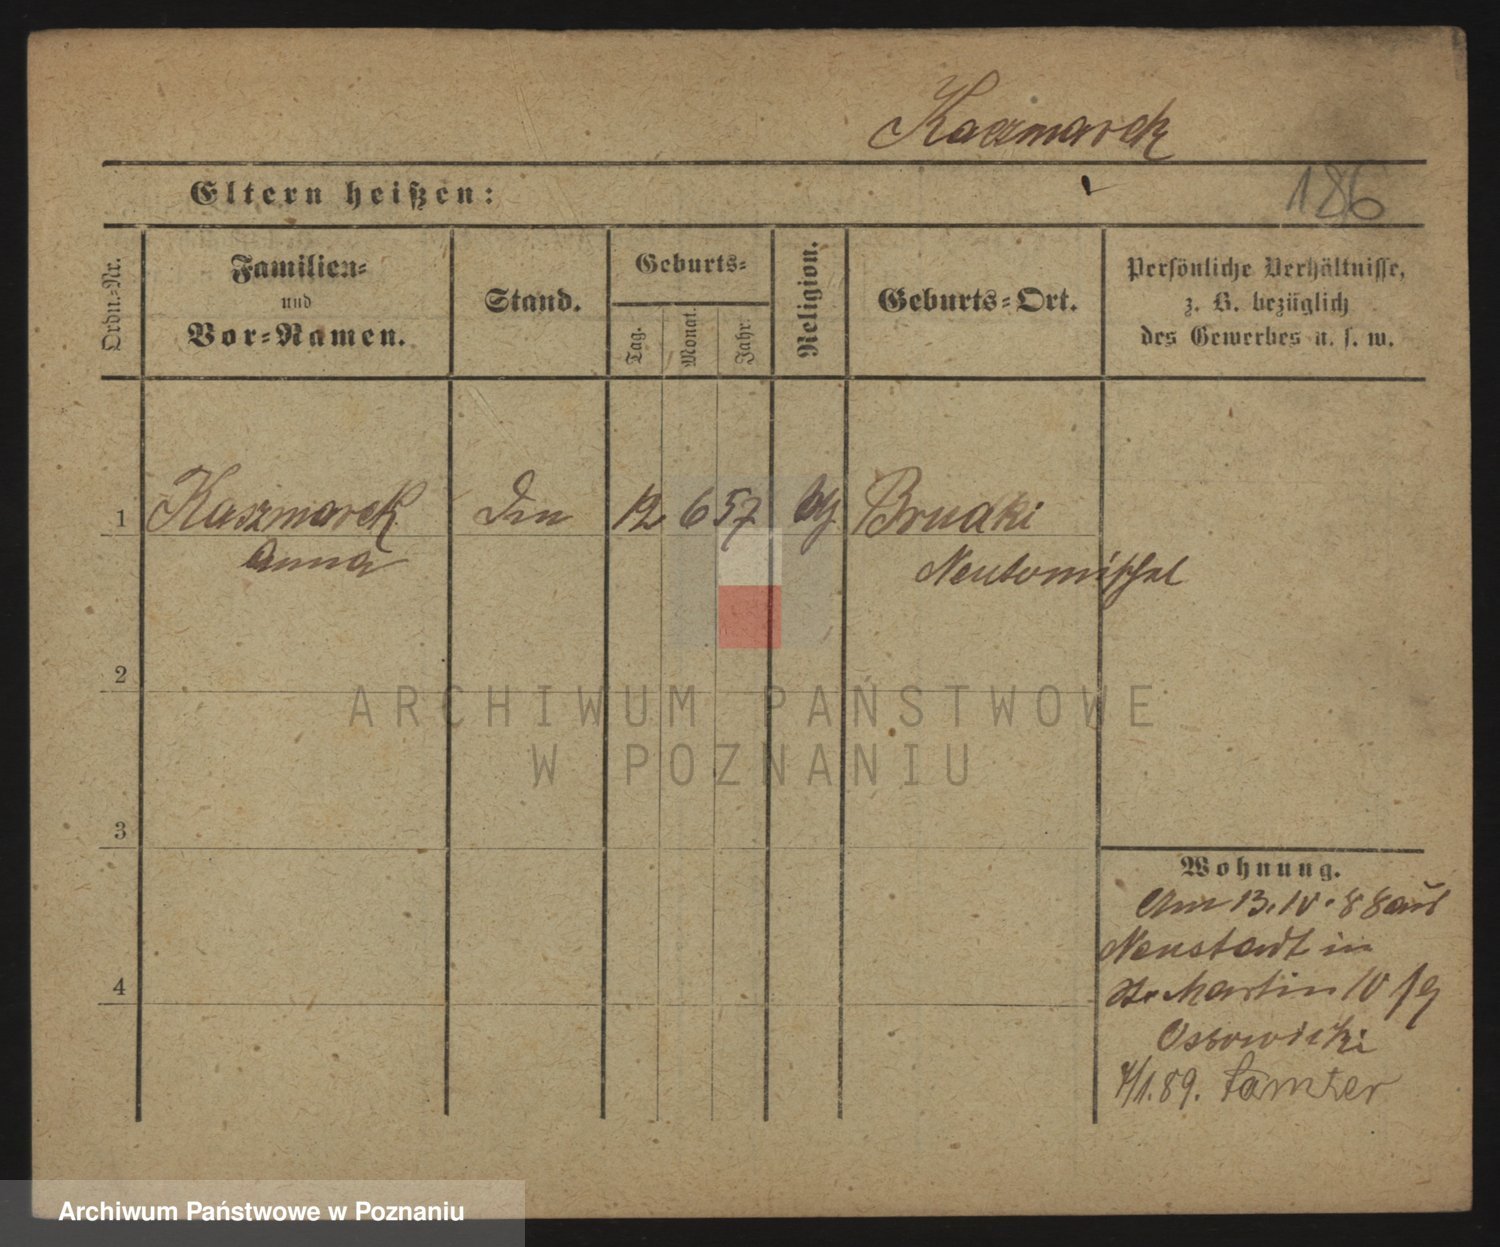 Kaczmarek
Eltern heißen:
186
Ordn.-Nr.
Familien-
und
Vor-Namen.
Stand.
Geburts-
Tag.
Monat.
Jahr.
Religion.
Geburts-Ort.
Persönliche Verhältnisse,
z. B. bezüglich
des Gewerbes u. s. w.
1
Kaszmarek
12
6
57
Brudki
Anna
Neutomischel
2
ARCHIWUM PAŃSTWOWE
W POZNANIU
3
Wohnung.
Am 13.10.88 aus
Neustadt in
St. Martin 10
Ossowicki
4
4/1.89. Samter
Archiwum Państwowe w Poznaniu